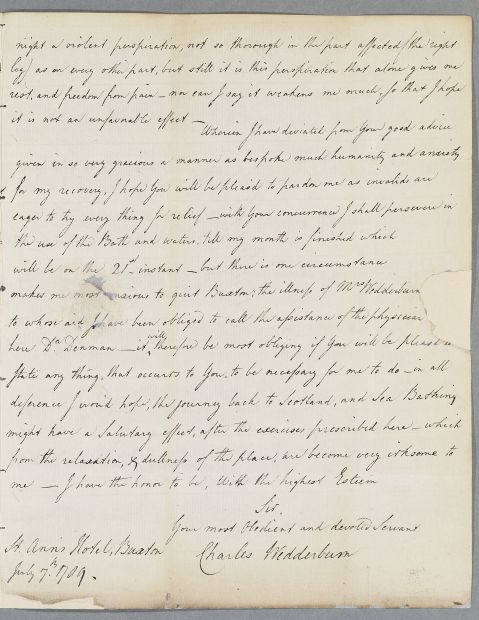 night a violent perspiration, not so thorough in the part affected (the right
leg) as on every other part, but still it is this perspiration that alone gives me
rest, and freedom from pain – nor can I say it weakens me much, so that I hope
it is not an unfavorable effect –
Wherein I have deviated from Your good advice
given in so very gracious a manner as bespoke much humanity and anxiety
for my recovery, I hope You will be pleas'd to pardon me as invalids are
eager to try every thing for relief – with Your concurrence I shall persevere in
the use of the Bath and waters, till my month is finished which
will be on the 21st instant – but there is one circumstance
makes me most anxious to quit Buxton; the illness of Mrs Wedderburn
to whose aid I have been obliged to call the assistance of the physician
here Dr Denman – it will therefore be most obliging if You will be pleas'd to
State any thing, that occurrs to You, to be necessary for me to do – in all
deference I woud hope, the journey back to Scotland, and Sea Bathing
might have a Salutary effect, after the exercises prescribed here – which
from the relaxation, & dullness of the place, are become very irksome to
me – I have the honor to be, With the highest Esteem
Sir.
Your most Obedient and devoted Servant
Charles Wedderburn
St. Ann's Hotel, Buxton
July 7th 1789.